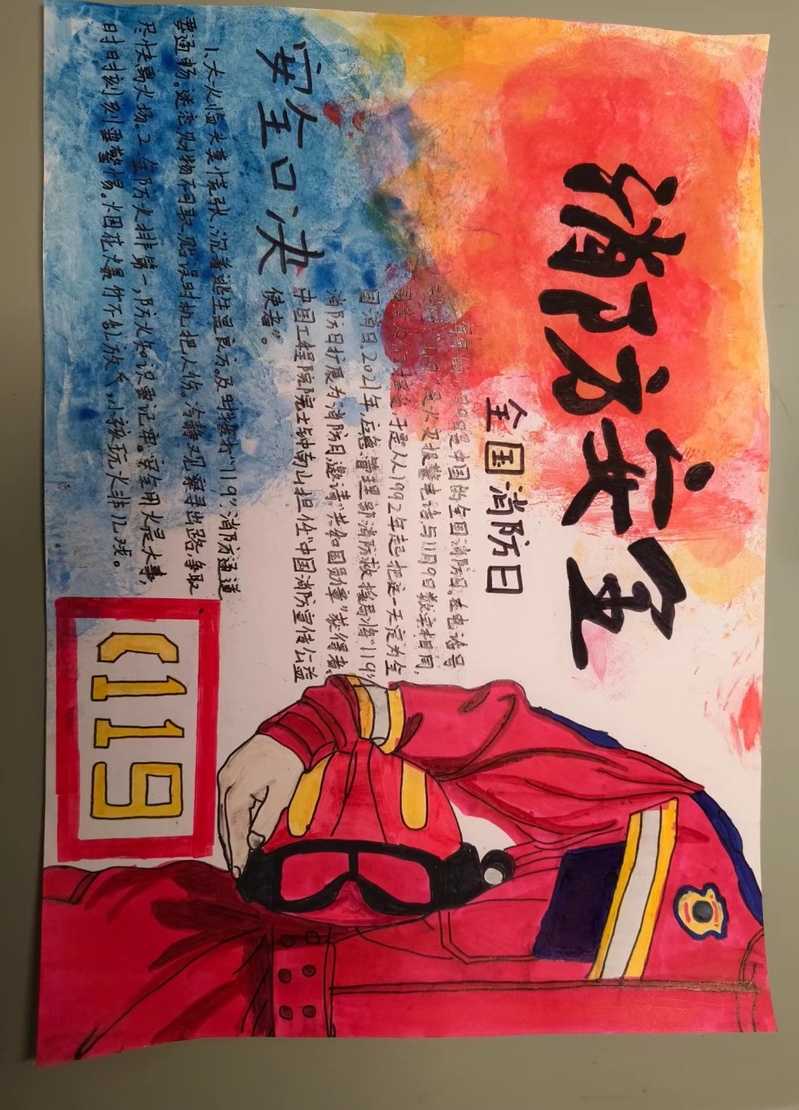 消防安全
全国消防日
11月9日是中国的全国消防日。在电话号
是火灾报警电话与11月9日数字相同,
于是从1992年起,把这一天定为全
国消日,2021年,应急管理部消防救援局将“119”
消防日扩展为消防月,邀请“共和国勋章”获得者、
中国工程院院士钟南山担任“中国消防宣传公益
使者”。
安全口决
1.大火临头要慌张,沉着逃生是良方。及时拨打“119”,消防通道
要通畅。迷恋财物不可取,贻误时机把人伤。冷静观察寻出路,争取
尽快离火场。2.全防火排第一,防火知识要记牢。安全用火是大事,
时时刻刻要警惕。烟花爆竹不乱放,小孩玩火非儿戏。
119